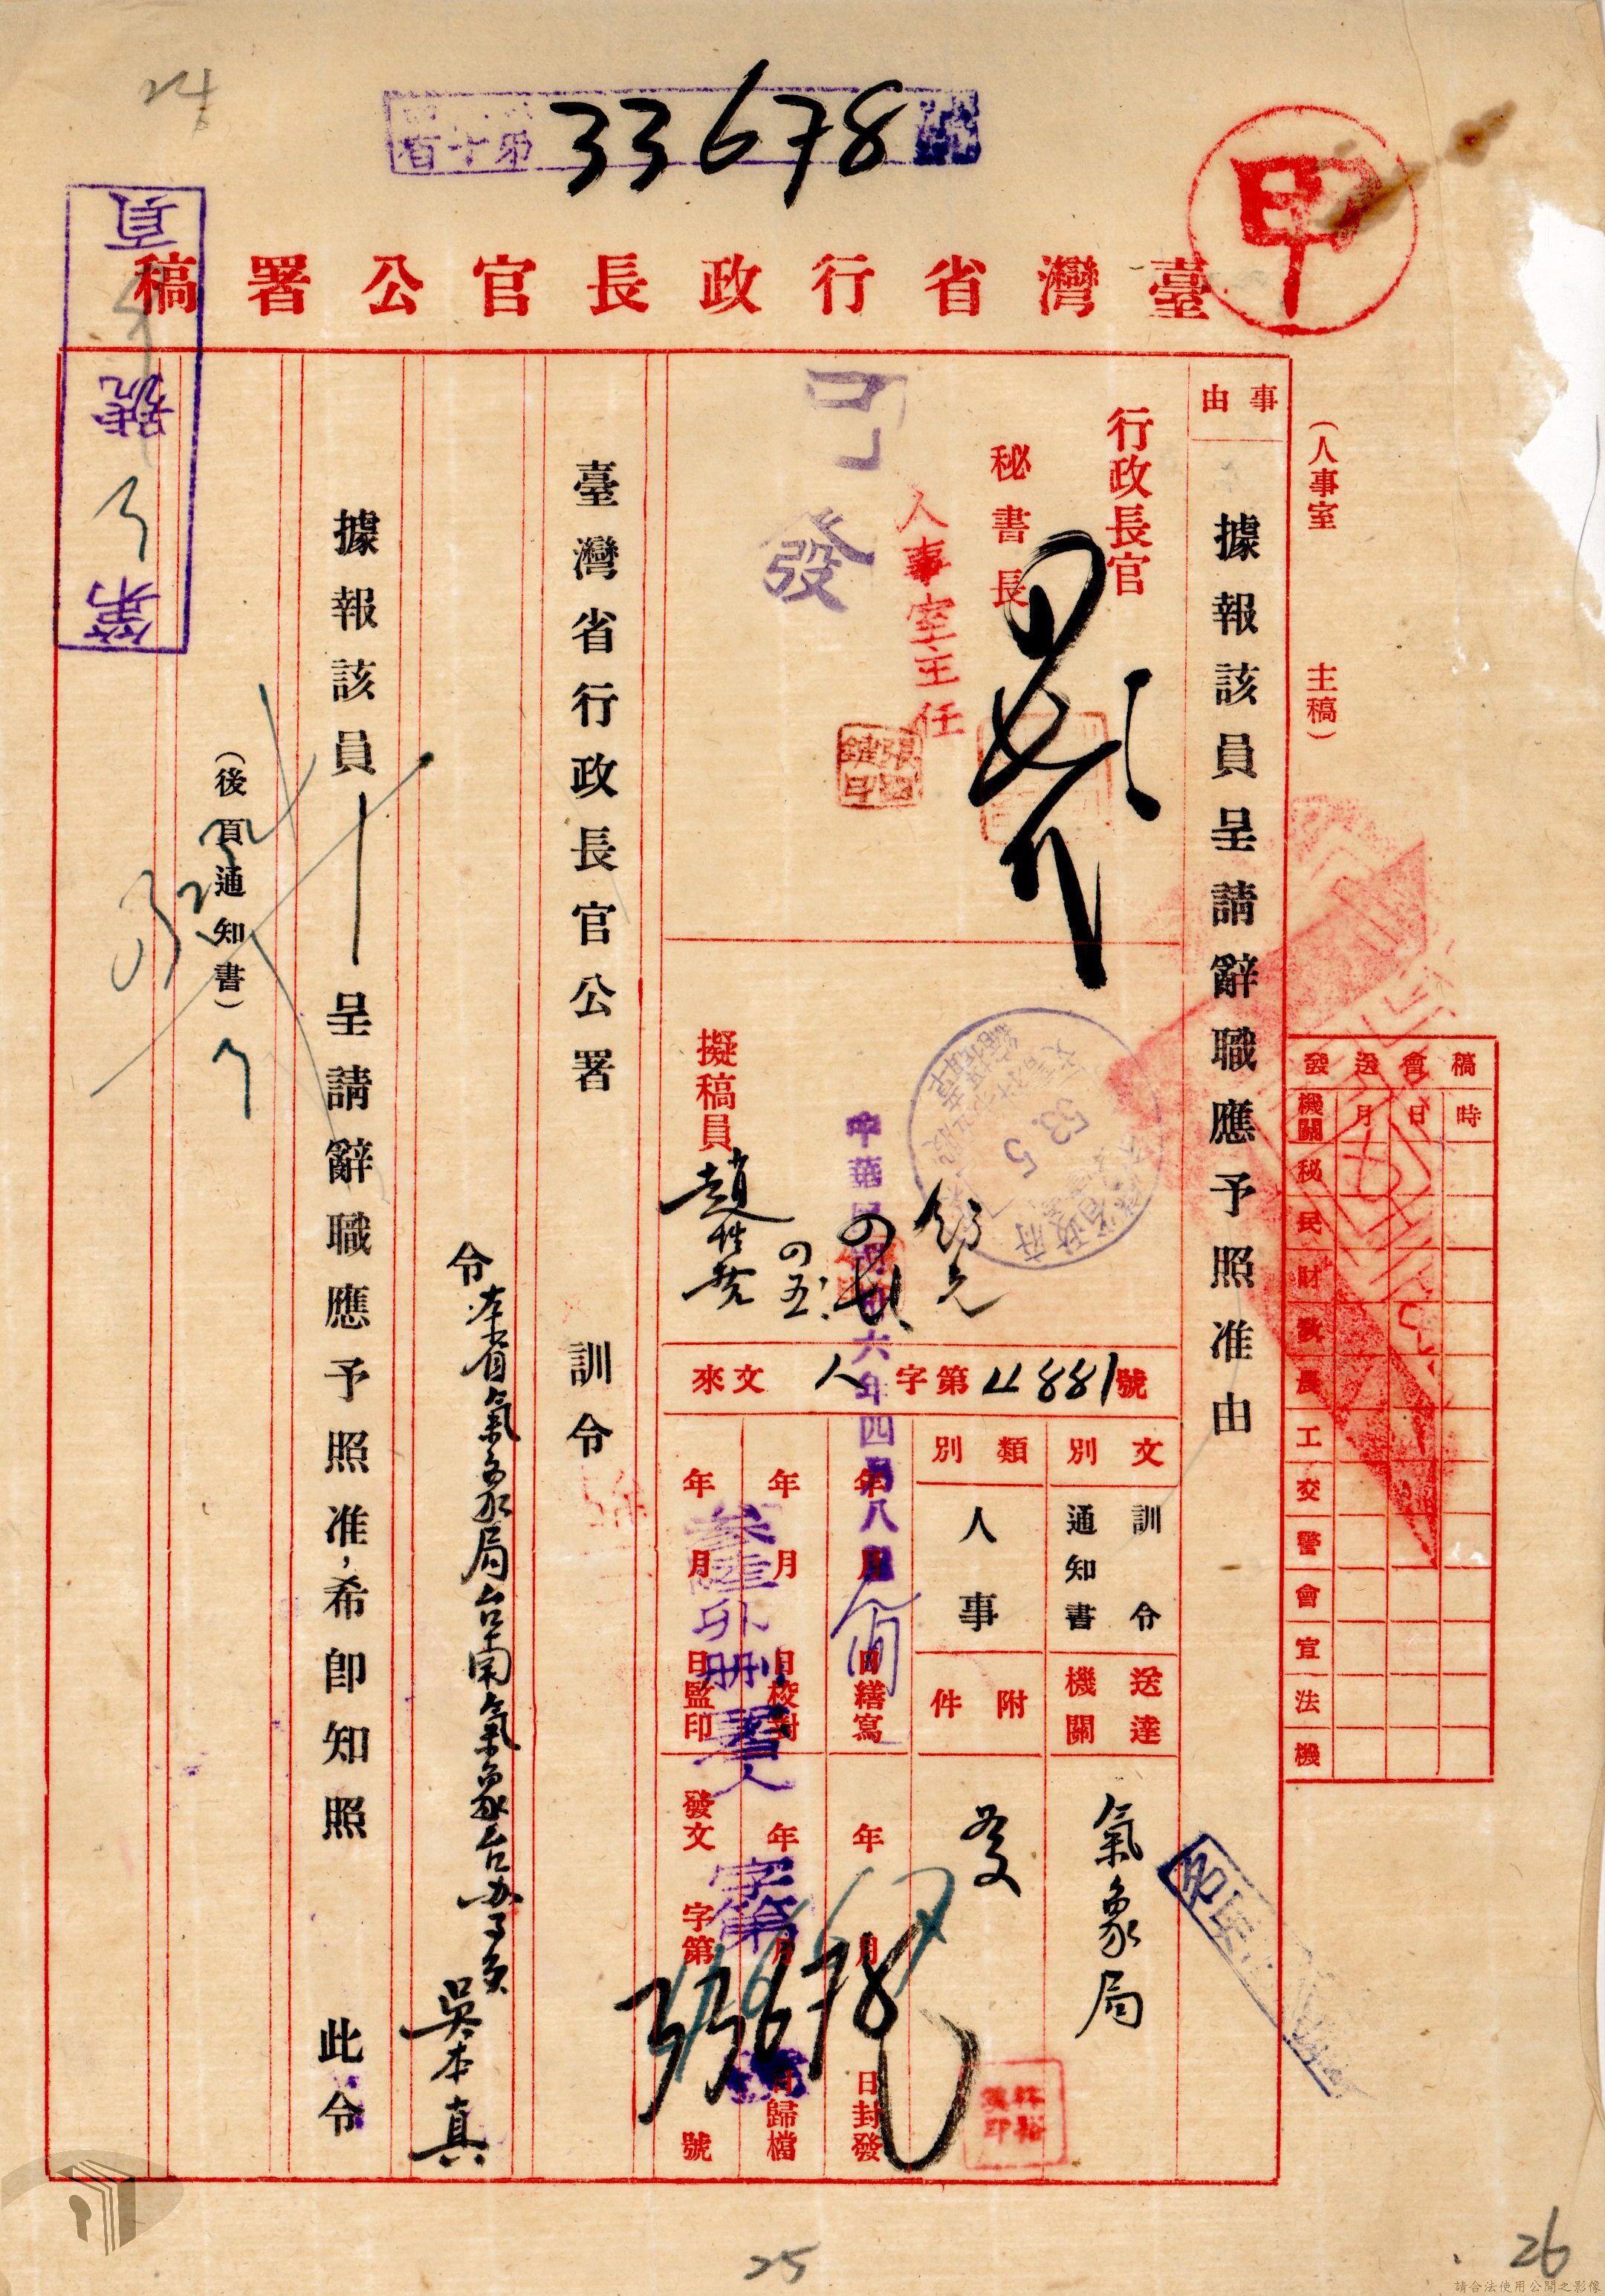 24
33678
甲
臺灣省行政長官公署稿
(人事室　主稿)
事由
據報該員呈請辭職應予照准由
行政長官
秘書長
人事室主任
已發
擬稿員
來文　人字第4881號
文別　訓令　通知書
類別　人事
送達機關　氣象局
附件　發
年　月　日繕寫
年　月　日校對
年　月　日監印
年　月　日封發
年　月　日歸檔
發文　字第　號
33678
臺灣省行政長官公署　訓令
令本省氣象局台南氣象台办事員
吳本真
據報該員｜呈請辭職應予照准，希即知照　此令
(後頁通知書)
第　號　頁
稿會送發
時日月機關
秘
民
財
教
農
工
交
警
會
宣
法
機
25
26
請合法使用公開之影像